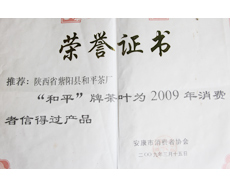 荣誉证书
推荐：陕西省紫阳县和平茶厂
“和平”牌茶叶为2009年消费
者信得过产品
安康市消费者协会
二〇〇九年三月十五日